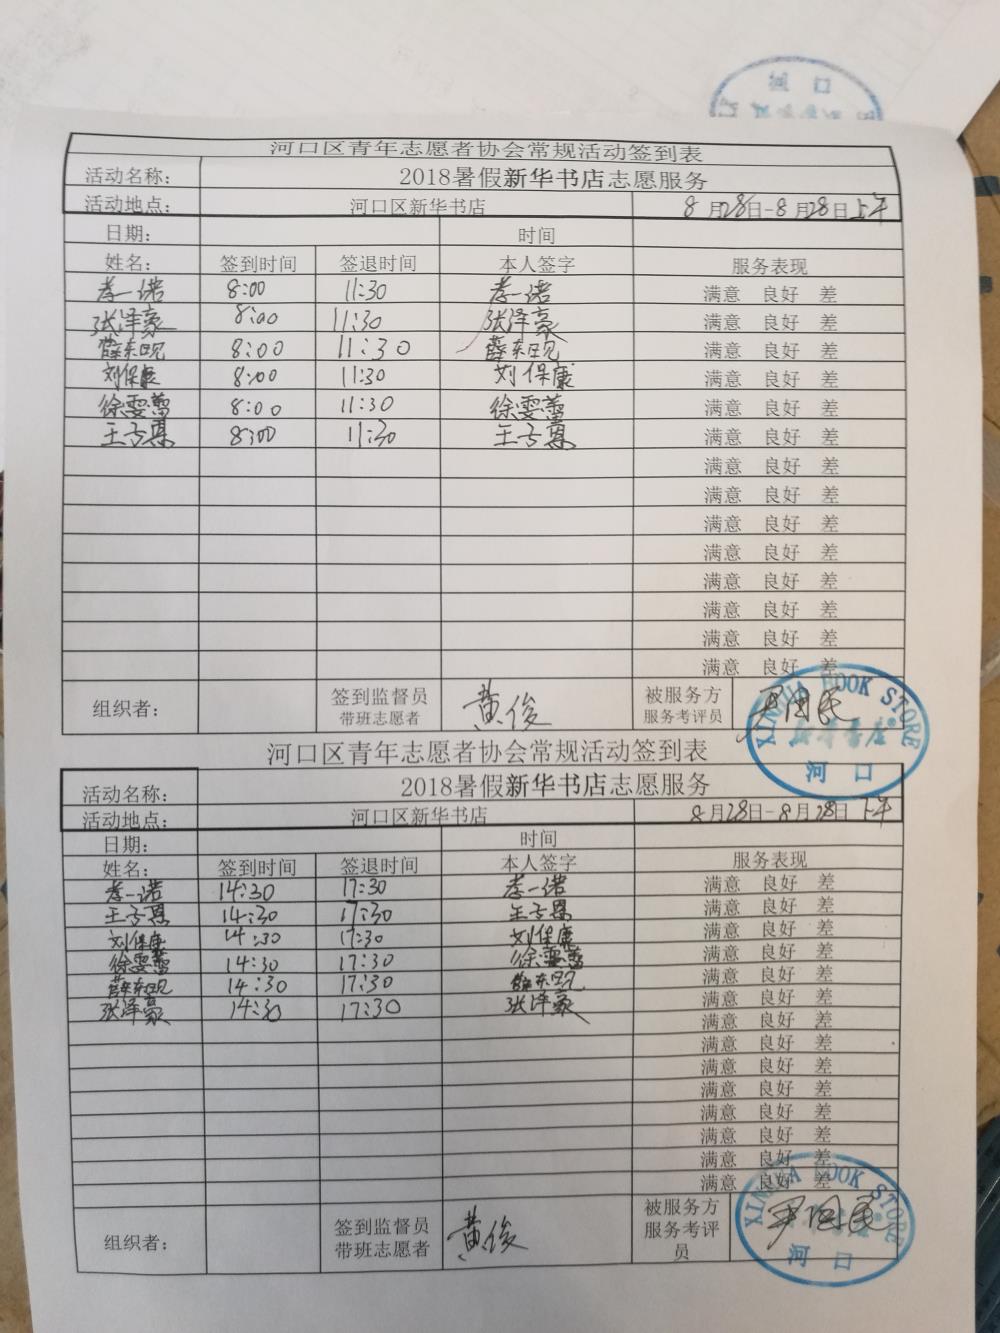 河口
河口区青年志愿者协会常规活动签到表
活动名称: 2018暑假新华书店志愿服务
活动地点: 河口区新华书店 8月28日-8月28日上午
日期: 时间
姓名: 签到时间 签退时间 本人签字 服务表现
李一诺 8:00 11:30 李一诺 满意 良好 差
张泽豪 8:00 11:30 张泽豪 满意 良好 差
薛东 8:00 11:30 薛东 满意 良好 差
刘保康 8:00 11:30 刘保康 满意 良好 差
徐雯蕾 8:00 11:30 徐雯蕾 满意 良好 差
王子 8:00 11:30 王子 满意 良好 差
满意 良好 差
满意 良好 差
满意 良好 差
满意 良好 差
满意 良好 差
满意 良好 差
满意 良好 差
满意 良好 差
组织者: 签到监督员 带班志愿者 黄俊 被服务方 服务考评员
XINHUA BOOK STORE
新华书店®
河口
河口区青年志愿者协会常规活动签到表
活动名称: 2018暑假新华书店志愿服务
活动地点: 河口区新华书店 8月28日-8月28日下午
日期: 时间
姓名: 签到时间 签退时间 本人签字 服务表现
李一诺 14:30 17:30 李一诺 满意 良好 差
王子 14:30 17:30 王子 满意 良好 差
刘保康 14:30 17:30 刘保康 满意 良好 差
徐雯蕾 14:30 17:30 徐雯蕾 满意 良好 差
薛东 14:30 17:30 薛东 满意 良好 差
张泽豪 14:30 17:30 张泽豪 满意 良好 差
满意 良好 差
满意 良好 差
满意 良好 差
满意 良好 差
满意 良好 差
满意 良好 差
满意 良好 差
满意 良好 差
组织者: 签到监督员 带班志愿者 黄俊 被服务方 服务考评员
XINHUA BOOK STORE
河口